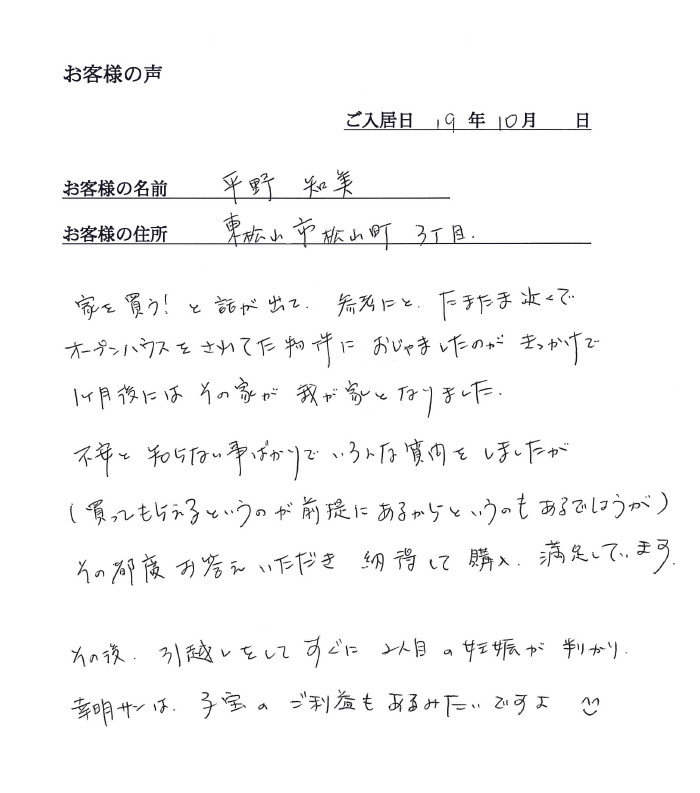 お客様の声
ご入居日 19年10月 日
お客様の名前 平野 知美
お客様の住所 東松山市松山町 3丁目.
家を買う！と話が出て、参考にと、たまたま近くで
オープンハウスをされてた物件におじゃましたのがきっかけで
1ヶ月後にはその家が我が家となりました.
不安と知らない事ばかりでいろんな質問をしましたが
(買ってもらえるというのが前提にあるからというのもあるでしょうが)
その都度お答えいただき納得して購入、満足しています.
その後、引越しをしてすぐに2人目の妊娠が判かり、
幸明サンは、子宝のご利益もあるみたいですよ